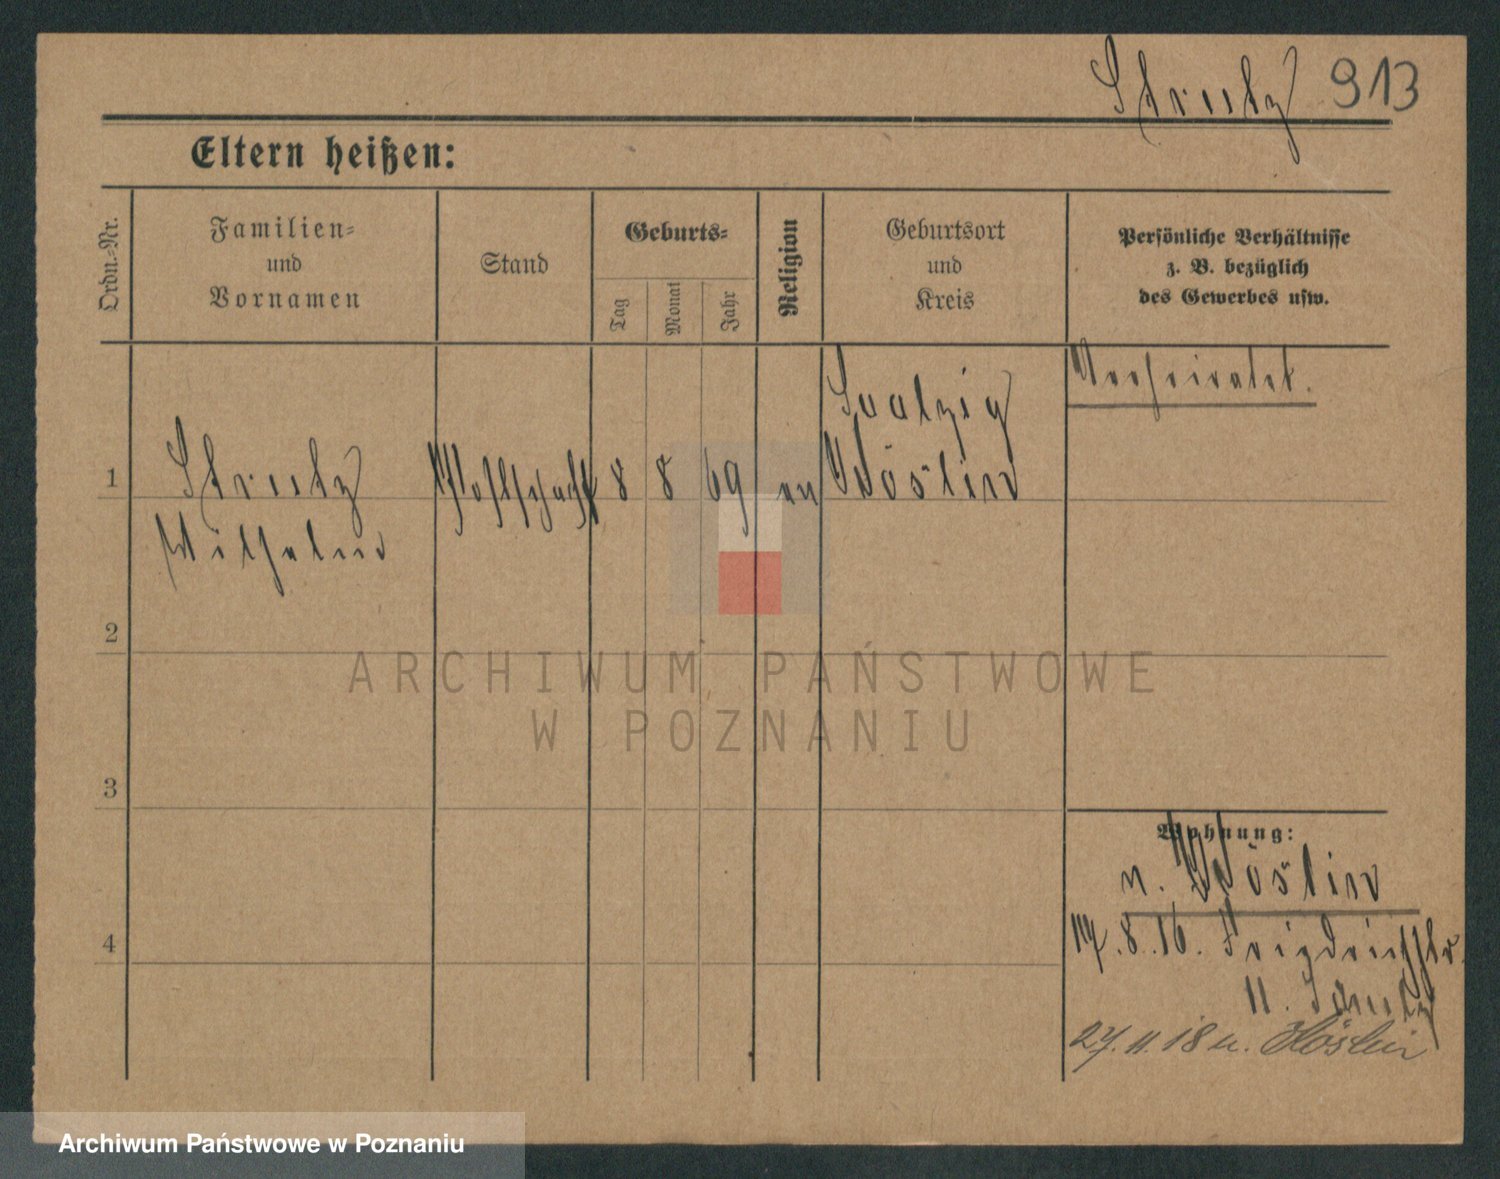 Strutz 913
Eltern heißen:
Ordn.-Nr.
Familien-
und
Vornamen
Stand
Geburts-
Tag
Monat
Jahr
Religion
Geburtsort
und
Kreis
Persönliche Verhältnisse
z. B. bezüglich
des Gewerbes usw.
Verheiratet.
1
Strutz
Wilhelm
8 8 69 ev
Köslin
2
3
4
Wohnung:
n. Köslin
17.8.16. Friedrichstr.
11. Strutz
27.11.18 n. Köslin
ARCHIWUM PAŃSTWOWE
W POZNANIU
Archiwum Państwowe w Poznaniu